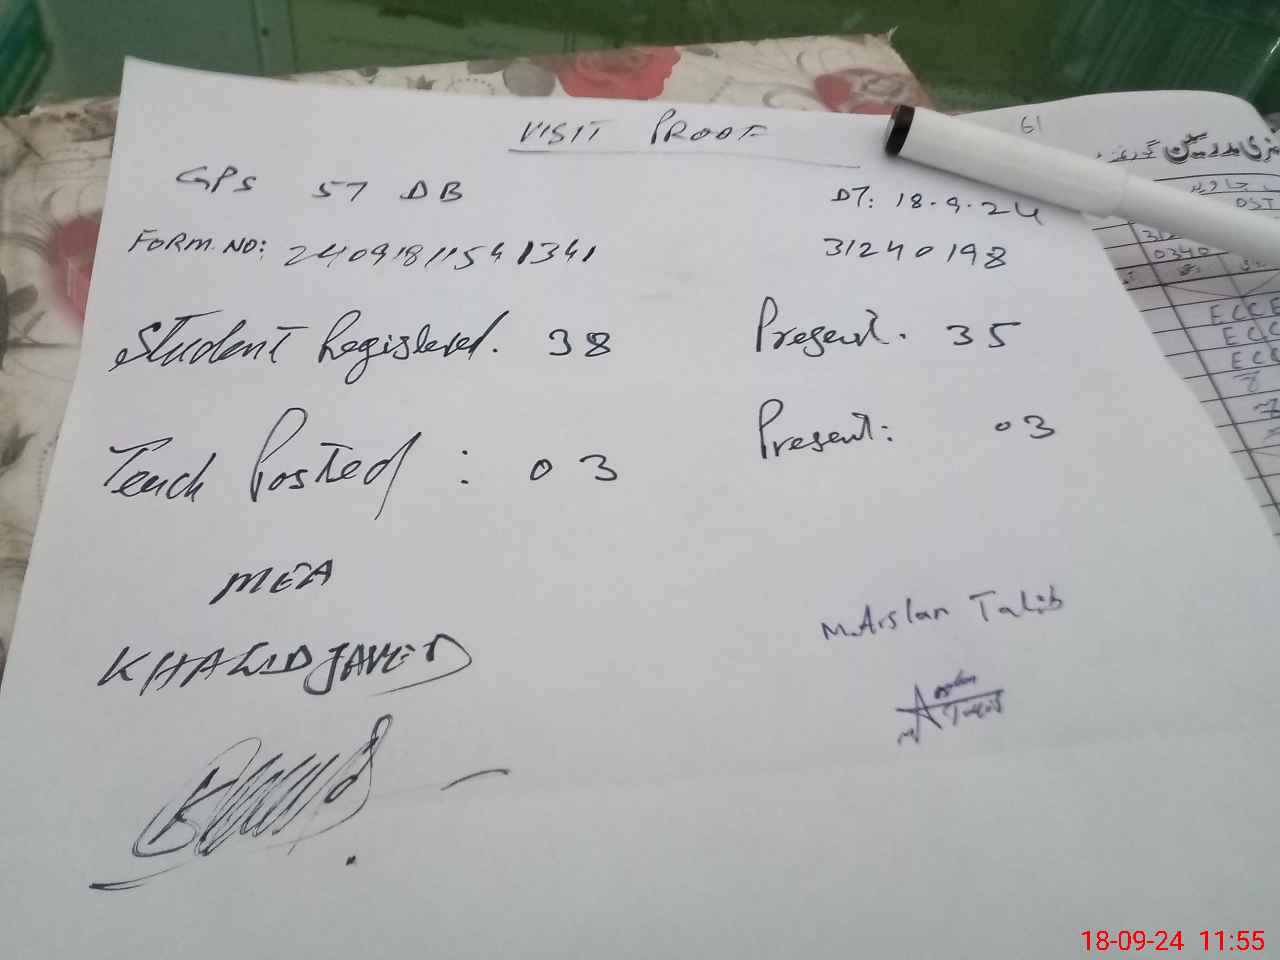 VISIT PROOF
GPS 57 DB
DT: 18.9.24
FORM.NO: 24091811541341
31240198
Student Registered. 38
Present. 35
Teach Posted : 03
Present: 03
MEA
KHALID JAVED
M.Arslan Talib
61
OST
0340
ECCE
ECC
ECC
7
18-09-24 11:55